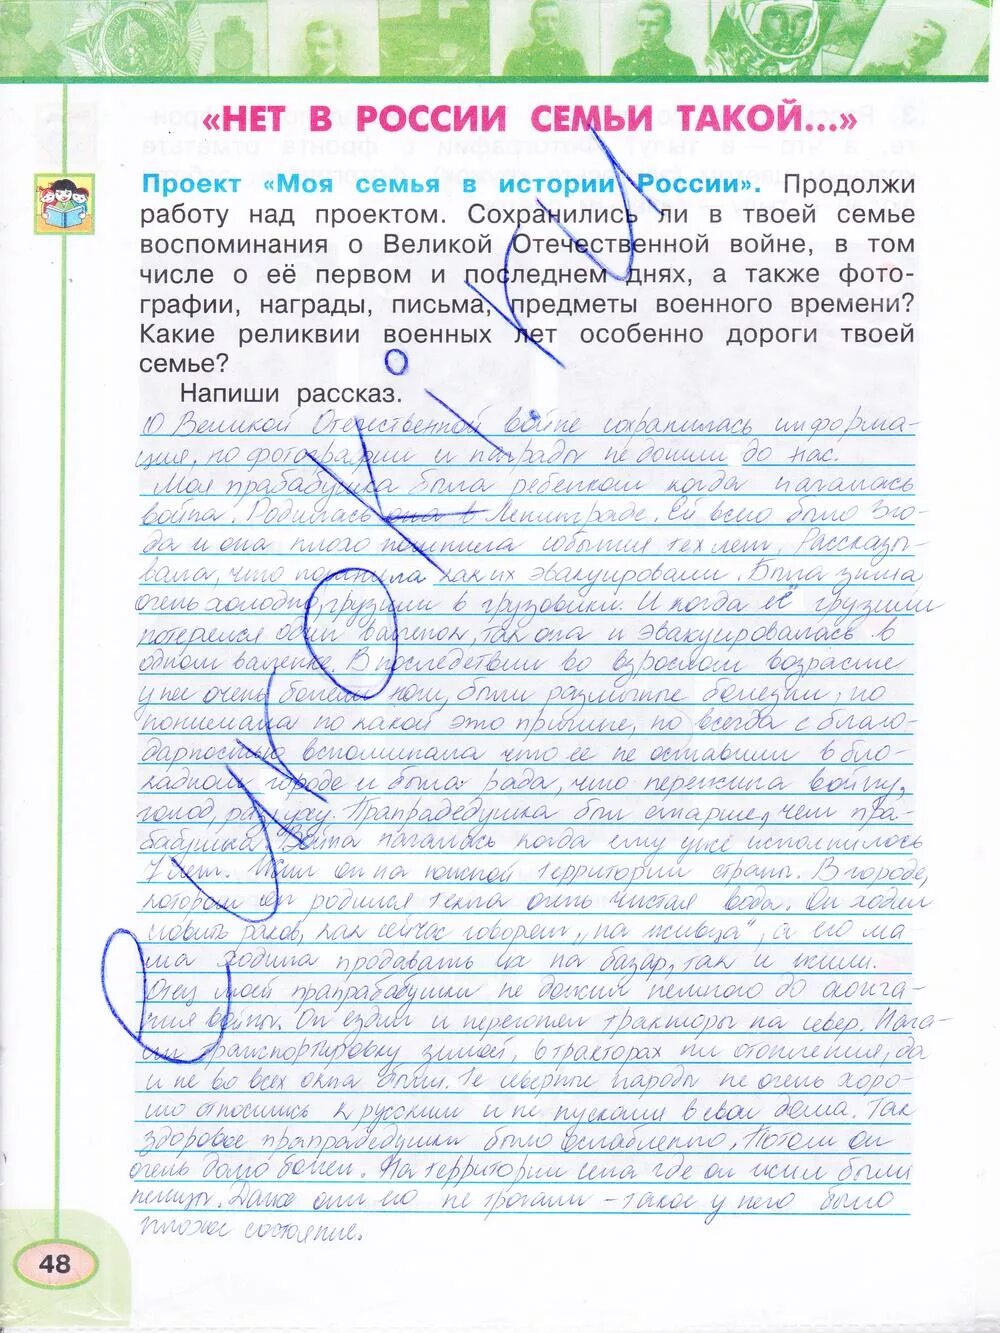 «НЕТ В РОССИИ СЕМЬИ ТАКОЙ...»
Проект «Моя семья в истории России». Продолжи
работу над проектом. Сохранились ли в твоей семье
воспоминания о Великой Отечественной войне, в том
числе о её первом и последнем днях, а также фото-
графии, награды, письма, предметы военного времени?
Какие реликвии военных лет особенно дороги твоей
семье?
Напиши рассказ.
О Великой Отечественной войне сохранилась информа-
ция, но фотографии и награды не дошли до нас.
Моя прабабушка была ребенком когда началась
война. Родилась она в Ленинграде. Ей было 3 го-
да и она плохо помнила события тех лет. Рассказы-
вала, что помнила как их эвакуировали. Была зима
очень холодно, грузили в грузовики. И когда её грузили
потерялся один валенок, так она и эвакуировалась в
одном валенке. В последствии во взрослом возрасте
у нее очень болели ноги, были различные болезни, но
понимала по какой это причине, но всегда с благо-
дарностью вспоминала что ее не оставили в бло-
кадном городе и была рада, что пережила войну,
голод, разруху. Прапрадедушка был старше, чем пра-
бабушка. Война началась когда ему уже исполнилось
7 лет. Жил он на южной территории страны. В городе,
котором он родился текла очень чистая вода. Он ходил
ловить раков, как сейчас говорят „на живца“, а его ма-
ма ходила продавать их на базар, так и жили.
Отец моей прапрабабушки не дожил немного до оконча-
ния войны. Он ездил и перегонял тракторы на север. Нача-
ли транспортировку зимой, в тракторах ни отопления, да
и не во всех окна были. Те северные народы не очень хоро-
шо относились к русским и не пускали в свои дома. Так
здоровье прапрадедушки было ослабленно. Потом он
очень долго болел. На территории села где он жил были
немцы. Даже они его не трогали – такое у него было
плохое состояние.
решоКi.ru
48